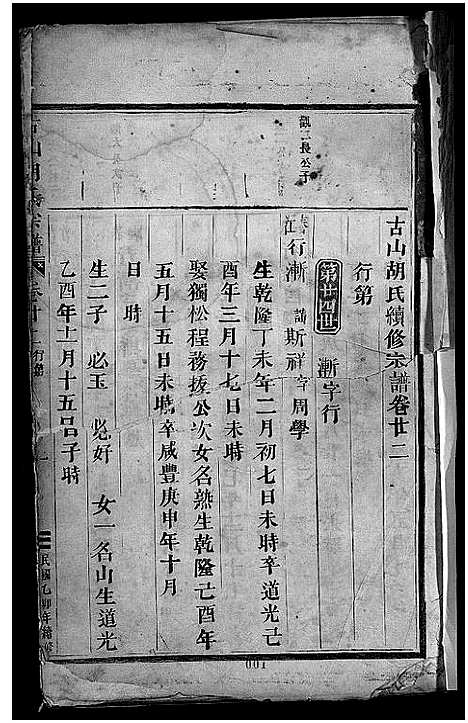 古山胡氏續修宗譜卷廿二
行第
第廿四世 漸字行
觀二長公子
行漸 諱斯祥字周學
生乾隆丁未年二月初七日未時卒道光己
酉年三月十七日未時
娶獨松程務授公次女名熟生乾隆己酉年
五月十五日未時卒咸豐庚申年十月
日 時
生二子 必玉 必好 女一名山生道光
乙酉年十一月十五日子時
古山胡氏宗譜 卷廿二行第
民國乙卯年續修
001